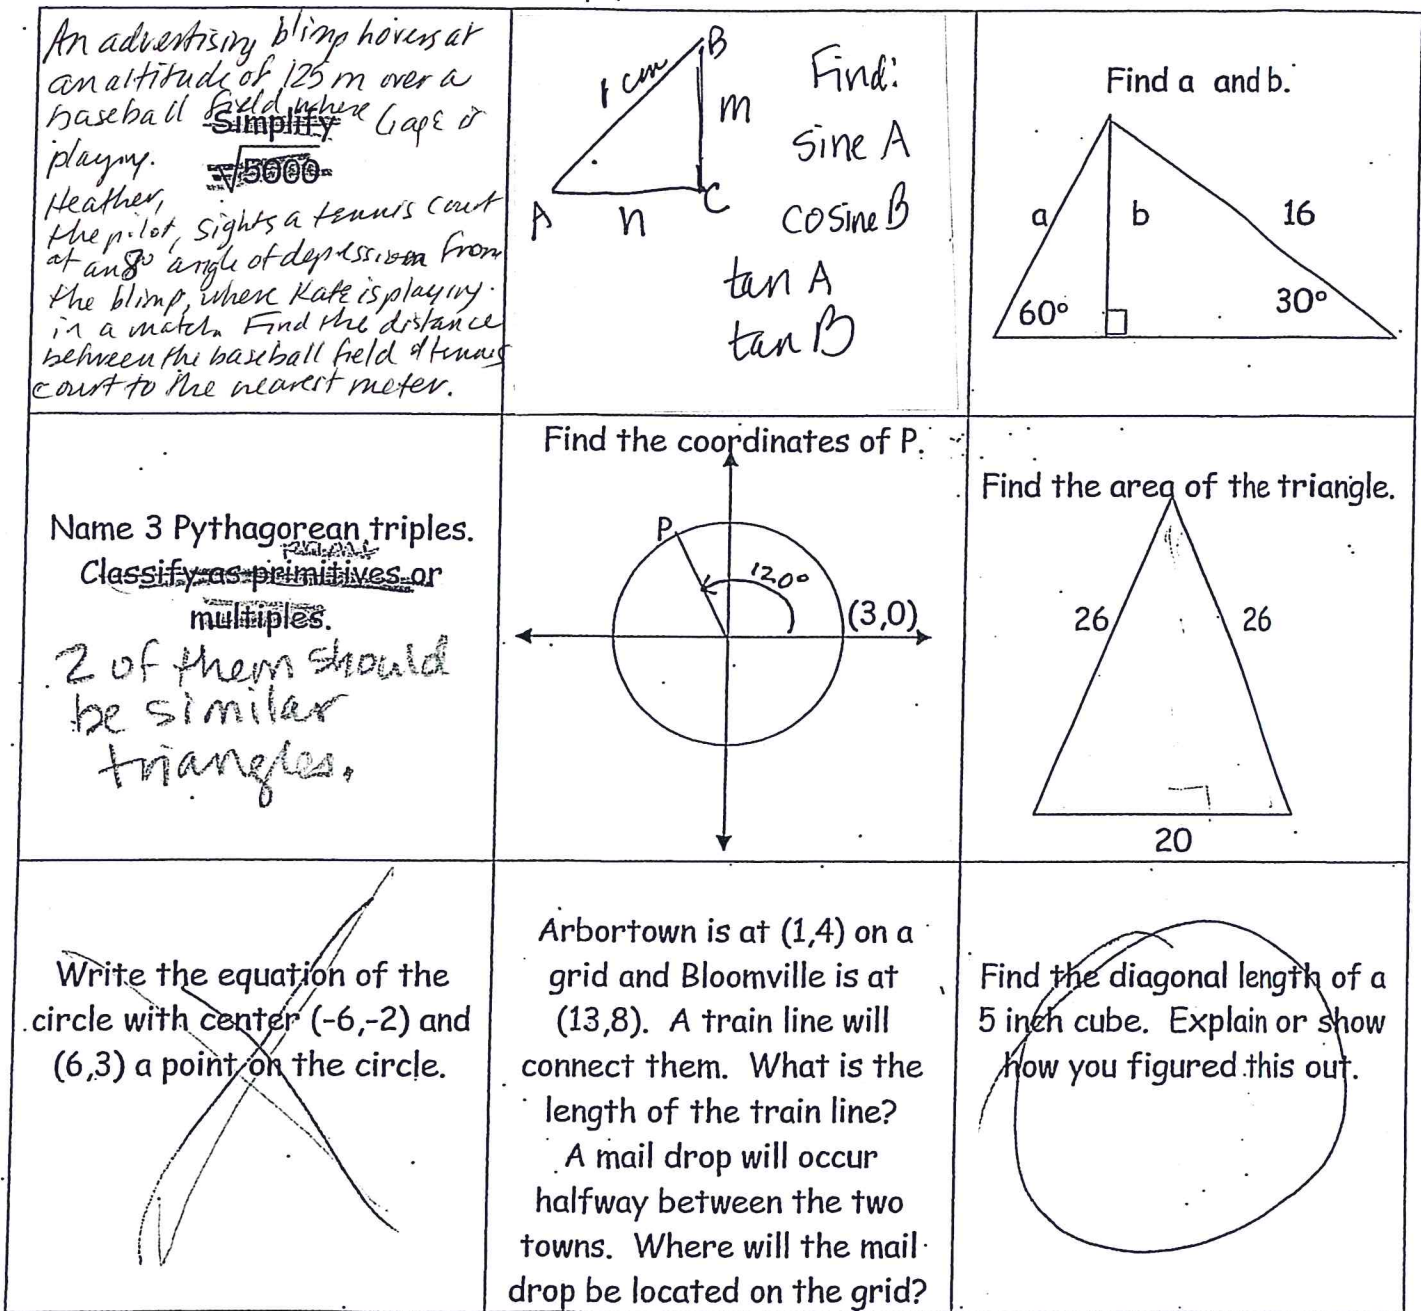 An advertising blimp hovers at
an altitude of 125 m over a
baseball field where Gage is
playing.
Simplify
√5000
Heather,
the pilot, sights a tennis court
at an 8° angle of depression from
the blimp, where Kate is playing
in a match. Find the distance
between the baseball field & tennis
court to the nearest meter.
B
1 cm
m
A
n
C
Find:
sine A
cosine B
tan A
tan B
Find a and b.
a
b
16
60°
30°
Name 3 Pythagorean triples.
Classify as primitives or
multiples.
2 of them should
be similar
triangles.
Find the coordinates of P.
P
120°
(3,0)
Find the area of the triangle.
26
26
20
Write the equation of the
circle with center (-6,-2) and
(6,3) a point on the circle.
Arbortown is at (1,4) on a
grid and Bloomville is at
(13,8). A train line will
connect them. What is the
length of the train line?
A mail drop will occur
halfway between the two
towns. Where will the mail
drop be located on the grid?
Find the diagonal length of a
5 inch cube. Explain or show
how you figured this out.